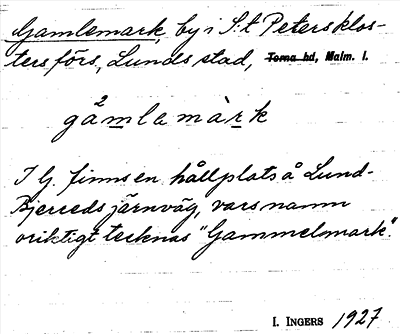 Gamlemark, by i S:t Petersklos-
ters förs., Lunds stad, Torna hd, Malm. l.
2
gamlemàrk
I G. finns en hållplats å Lund-
Bjerreds järnväg, vars namn
oriktigt tecknas "Gammelmark".
I. INGERS 1927